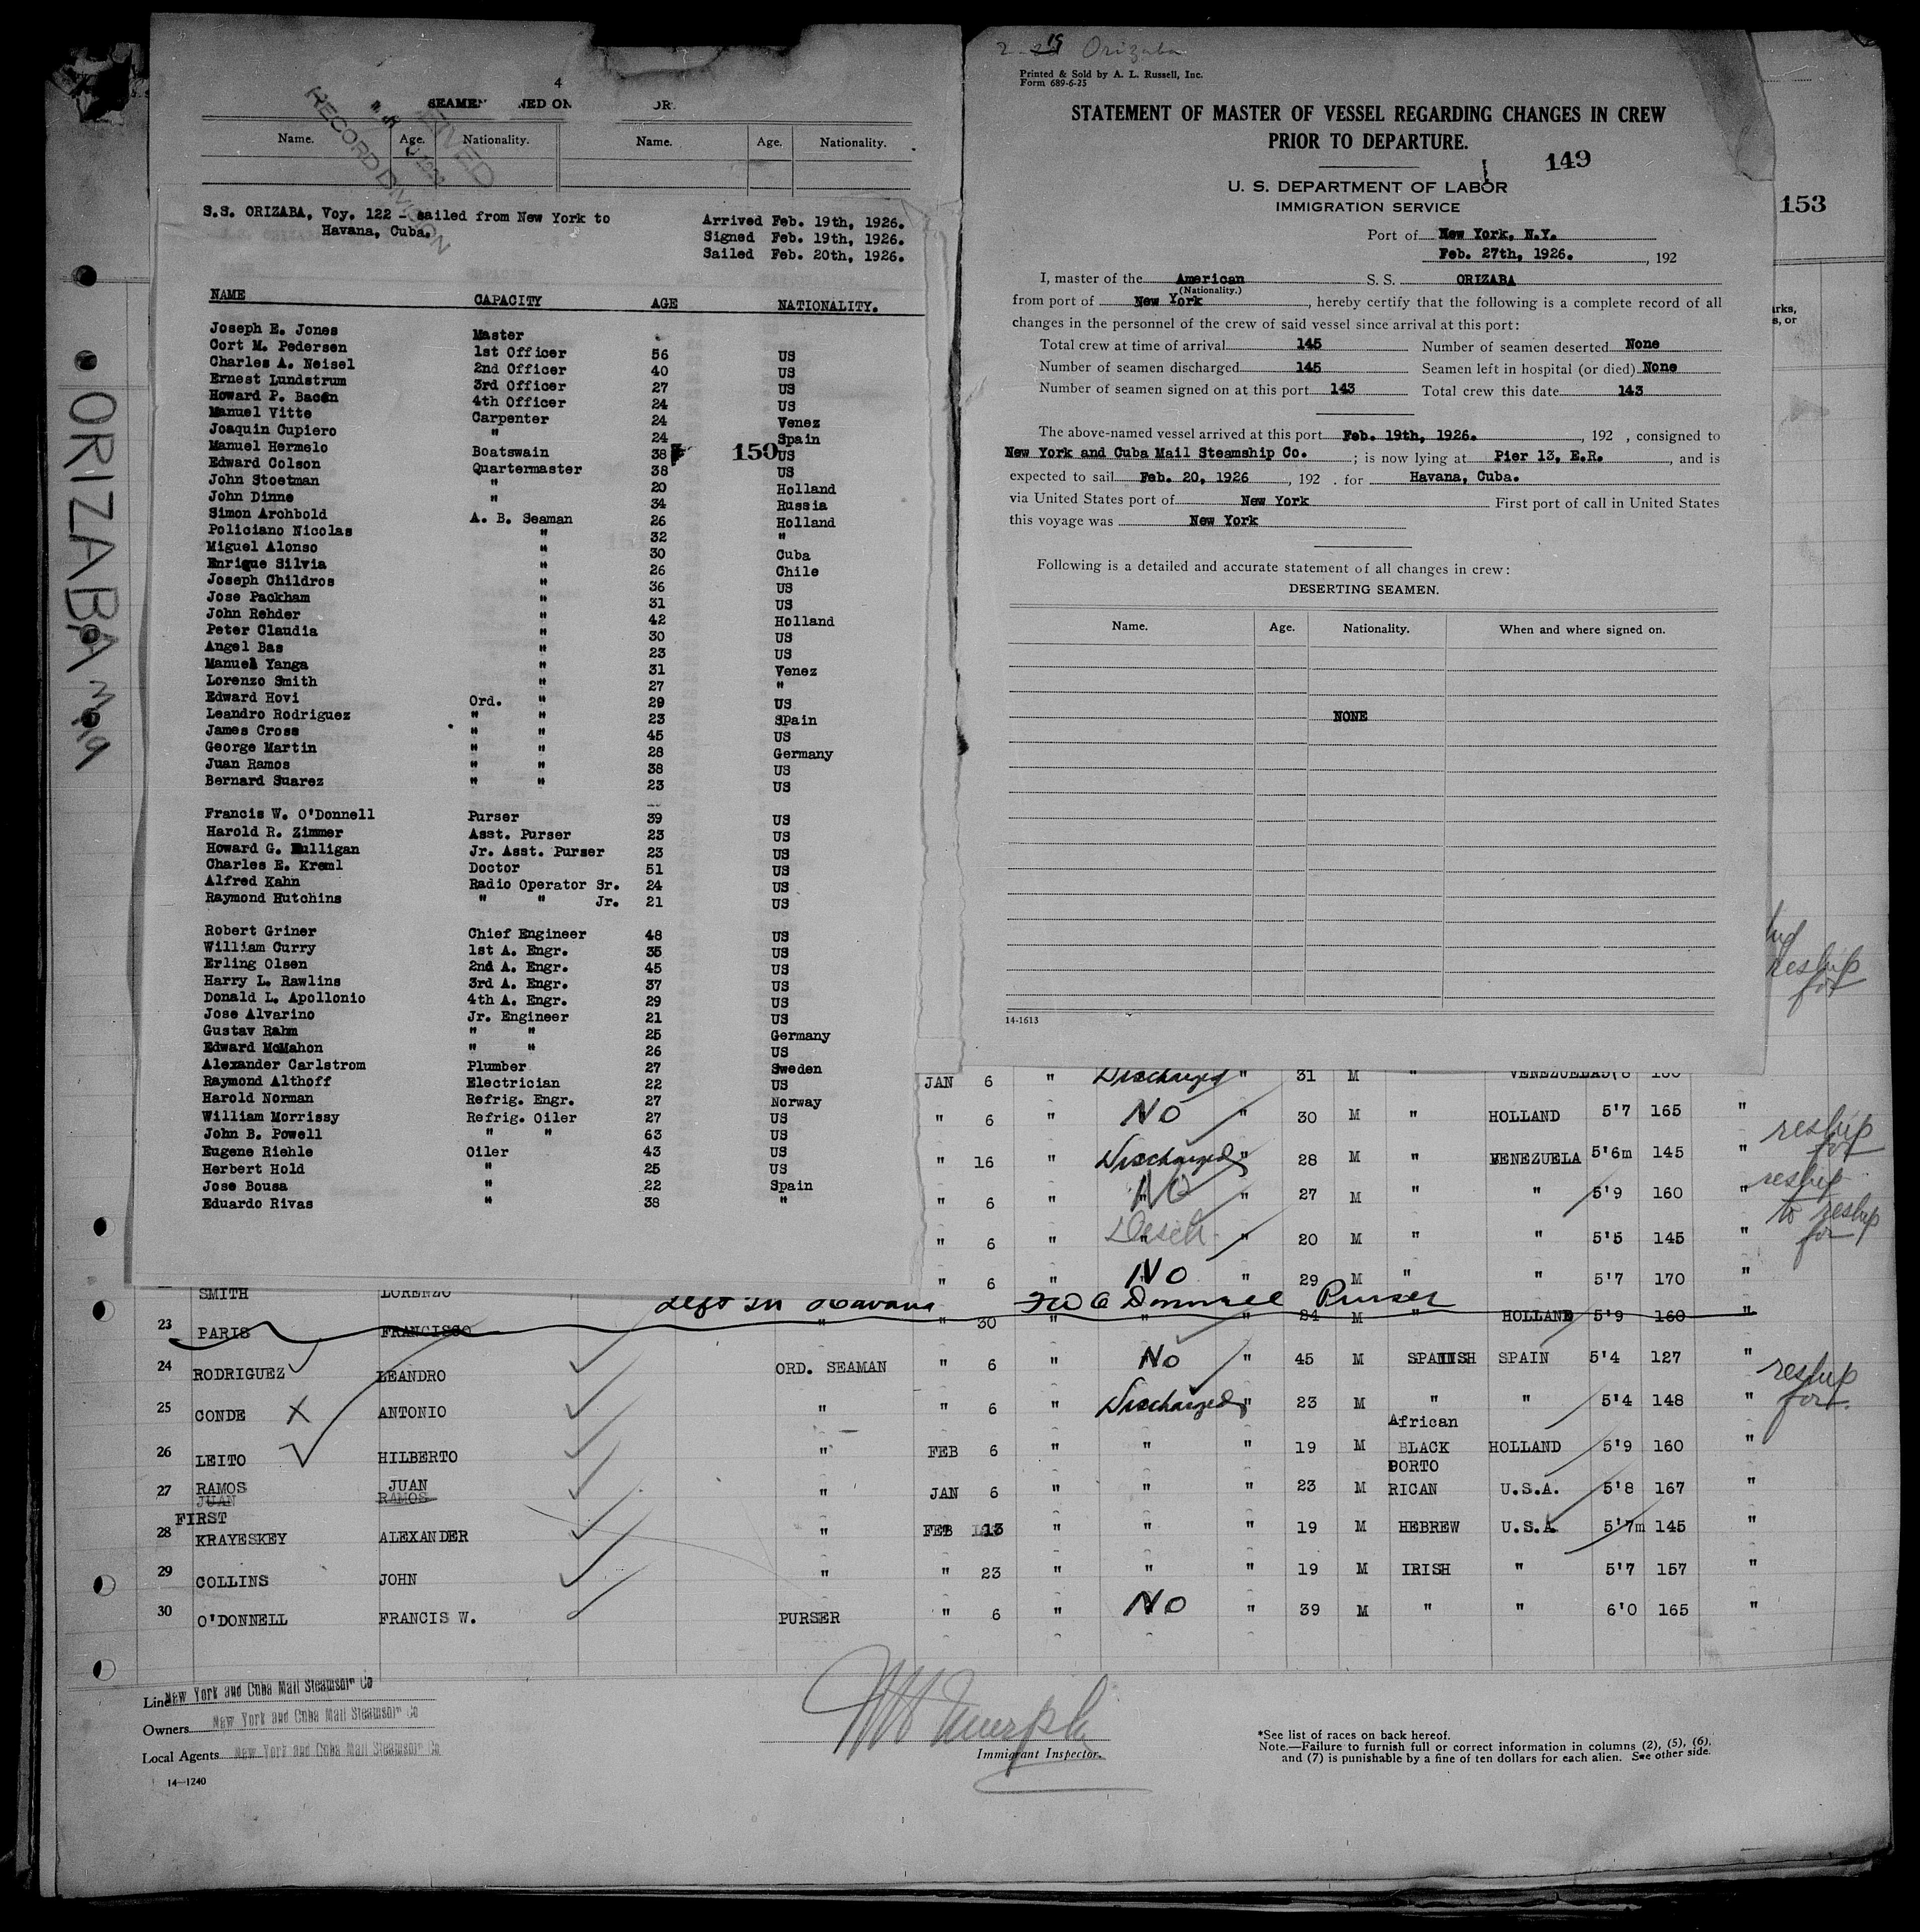 4
SEAMEN NED ON OR
Name. Age. Nationality. Name. Age. Nationality.
RECORD DIVISION
S.S. ORIZABA, Voy. 122 - sailed from New York to
Havana, Cuba.
Arrived Feb. 19th, 1926.
Signed Feb. 19th, 1926.
Sailed Feb. 20th, 1926.
NAME CAPACITY AGE NATIONALITY.
Joseph E. Jones Master
Cort M. Pedersen 1st Officer 56 US
Charles A. Neisel 2nd Officer 40 US
Ernest Lundstrum 3rd Officer 27 US
Howard P. Bacon 4th Officer 24 US
Manuel Vitte Carpenter 24 Venez
Joaquin Cupiero " 24 Spain
Manuel Hermelo Boatswain 38 US
150
Edward Colson Quartermaster 38 US
John Stoetman " 20 Holland
John Dinne " 34 Russia
Simon Archbold A. B. Seaman 26 Holland
Policiano Nicolas " 32 "
Miguel Alonso " 30 Cuba
Enrique Silvia " 26 Chile
Joseph Childros " 36 US
Jose Packham " 31 US
John Rehder " 42 Holland
Peter Claudia " 30 US
Angel Bas " 23 US
Manuel Yanga " 31 Venez
Lorenzo Smith " 27 "
Edward Hovi Ord. " 29 US
Leandro Rodriguez " " 23 Spain
James Cross " " 45 US
George Martin " " 28 Germany
Juan Ramos " " 38 US
Bernard Suarez " " 23 US
Francis W. O'Donnell Purser 39 US
Harold R. Zimmer Asst. Purser 23 US
Howard G. Mulligan Jr. Asst. Purser 23 US
Charles E. Kreml Doctor 51 US
Alfred Kahn Radio Operator Sr. 24 US
Raymond Hutchins " " Jr. 21 US
Robert Griner Chief Engineer 48 US
William Curry 1st A. Engr. 35 US
Erling Olsen 2nd A. Engr. 45 US
Harry L. Rawlins 3rd A. Engr. 37 US
Donald L. Apollonio 4th A. Engr. 29 US
Jose Alvarino Jr. Engineer 21 US
Gustav Rahm " " 25 Germany
Edward McMahon " " 26 US
Alexander Carlstrom Plumber 27 Sweden
Raymond Althoff Electrician 22 US
Harold Norman Refrig. Engr. 27 Norway
William Morrissy Refrig. Oiler 27 US
John B. Powell " " 63 US
Eugene Riehle Oiler 43 US
Herbert Hold " 25 US
Jose Bousa " 22 Spain
Eduardo Rivas " 38 "
ORIZABA
Orizaba
Printed & Sold by A. L. Russell, Inc.
Form 689-6-25
STATEMENT OF MASTER OF VESSEL REGARDING CHANGES IN CREW
PRIOR TO DEPARTURE.
149
U. S. DEPARTMENT OF LABOR
IMMIGRATION SERVICE
153
Port of New York, N.Y.
Feb. 27th, 1926. , 192
I, master of the American S. S. ORIZABA
(Nationality.)
from port of New York , hereby certify that the following is a complete record of all
changes in the personnel of the crew of said vessel since arrival at this port:
Total crew at time of arrival 145 Number of seamen deserted None
Number of seamen discharged 145 Seamen left in hospital (or died) None
Number of seamen signed on at this port 143 Total crew this date 143
The above-named vessel arrived at this port Feb. 19th, 1926. , 192 , consigned to
New York and Cuba Mail Steamship Co. ; is now lying at Pier 13, E.R. , and is
expected to sail Feb. 20, 1926 , 192 . for Havana, Cuba.
via United States port of New York First port of call in United States
this voyage was New York
Following is a detailed and accurate statement of all changes in crew:
DESERTING SEAMEN.
Name. Age. Nationality. When and where signed on.
NONE
14-1613
reship
for
JAN 6 " Discharged " 31 M " VENEZUELA
" 6 " NO " 30 M " HOLLAND 5'7 165 "
reship
for
" 16 " Discharged " 28 M " VENEZUELA 5'6m 145 "
" 6 " NO " 27 M " " 5'9 160 " reship
to reship
for
" 6 " Disch " 20 M " " 5'5 145 "
SMITH LORENZO " 6 " NO " 29 M " " 5'7 170 "
left in Havana FW O'Donnell Purser
23 PARIS FRANCISCO " " 30 " " " 24 M " HOLLAND 5'9 160 "
24 RODRIGUEZ LEANDRO ORD. SEAMAN " 6 " NO " 45 M SPANISH SPAIN 5'4 127 "
reship
for
25 CONDE X ANTONIO " " 6 " Discharged " 23 M " " 5'4 148 "
African
26 LEITO HILBERTO " FEB 6 " " " 19 M BLACK HOLLAND 5'9 160 "
PORTO
27 RAMOS JUAN " JAN 6 " " " 23 M RICAN U.S.A. 5'8 167 "
JUAN RAMOS
FIRST
28 KRAYESKEY ALEXANDER " FEB 13 " " " 19 M HEBREW U.S.A. 5'7m 145 "
29 COLLINS JOHN " " 23 " " " 19 M IRISH " 5'7 157 "
30 O'DONNELL FRANCIS W. PURSER " 6 " NO " 39 M " " 6'0 165 "
Line New York and Cuba Mail Steamship Co
Owners New York and Cuba Mail Steamship Co
Local Agents New York and Cuba Mail Steamship Co
14-1240
Immigrant Inspector.
*See list of races on back hereof.
Note.—Failure to furnish full or correct information in columns (2), (5), (6),
and (7) is punishable by a fine of ten dollars for each alien. See other side.